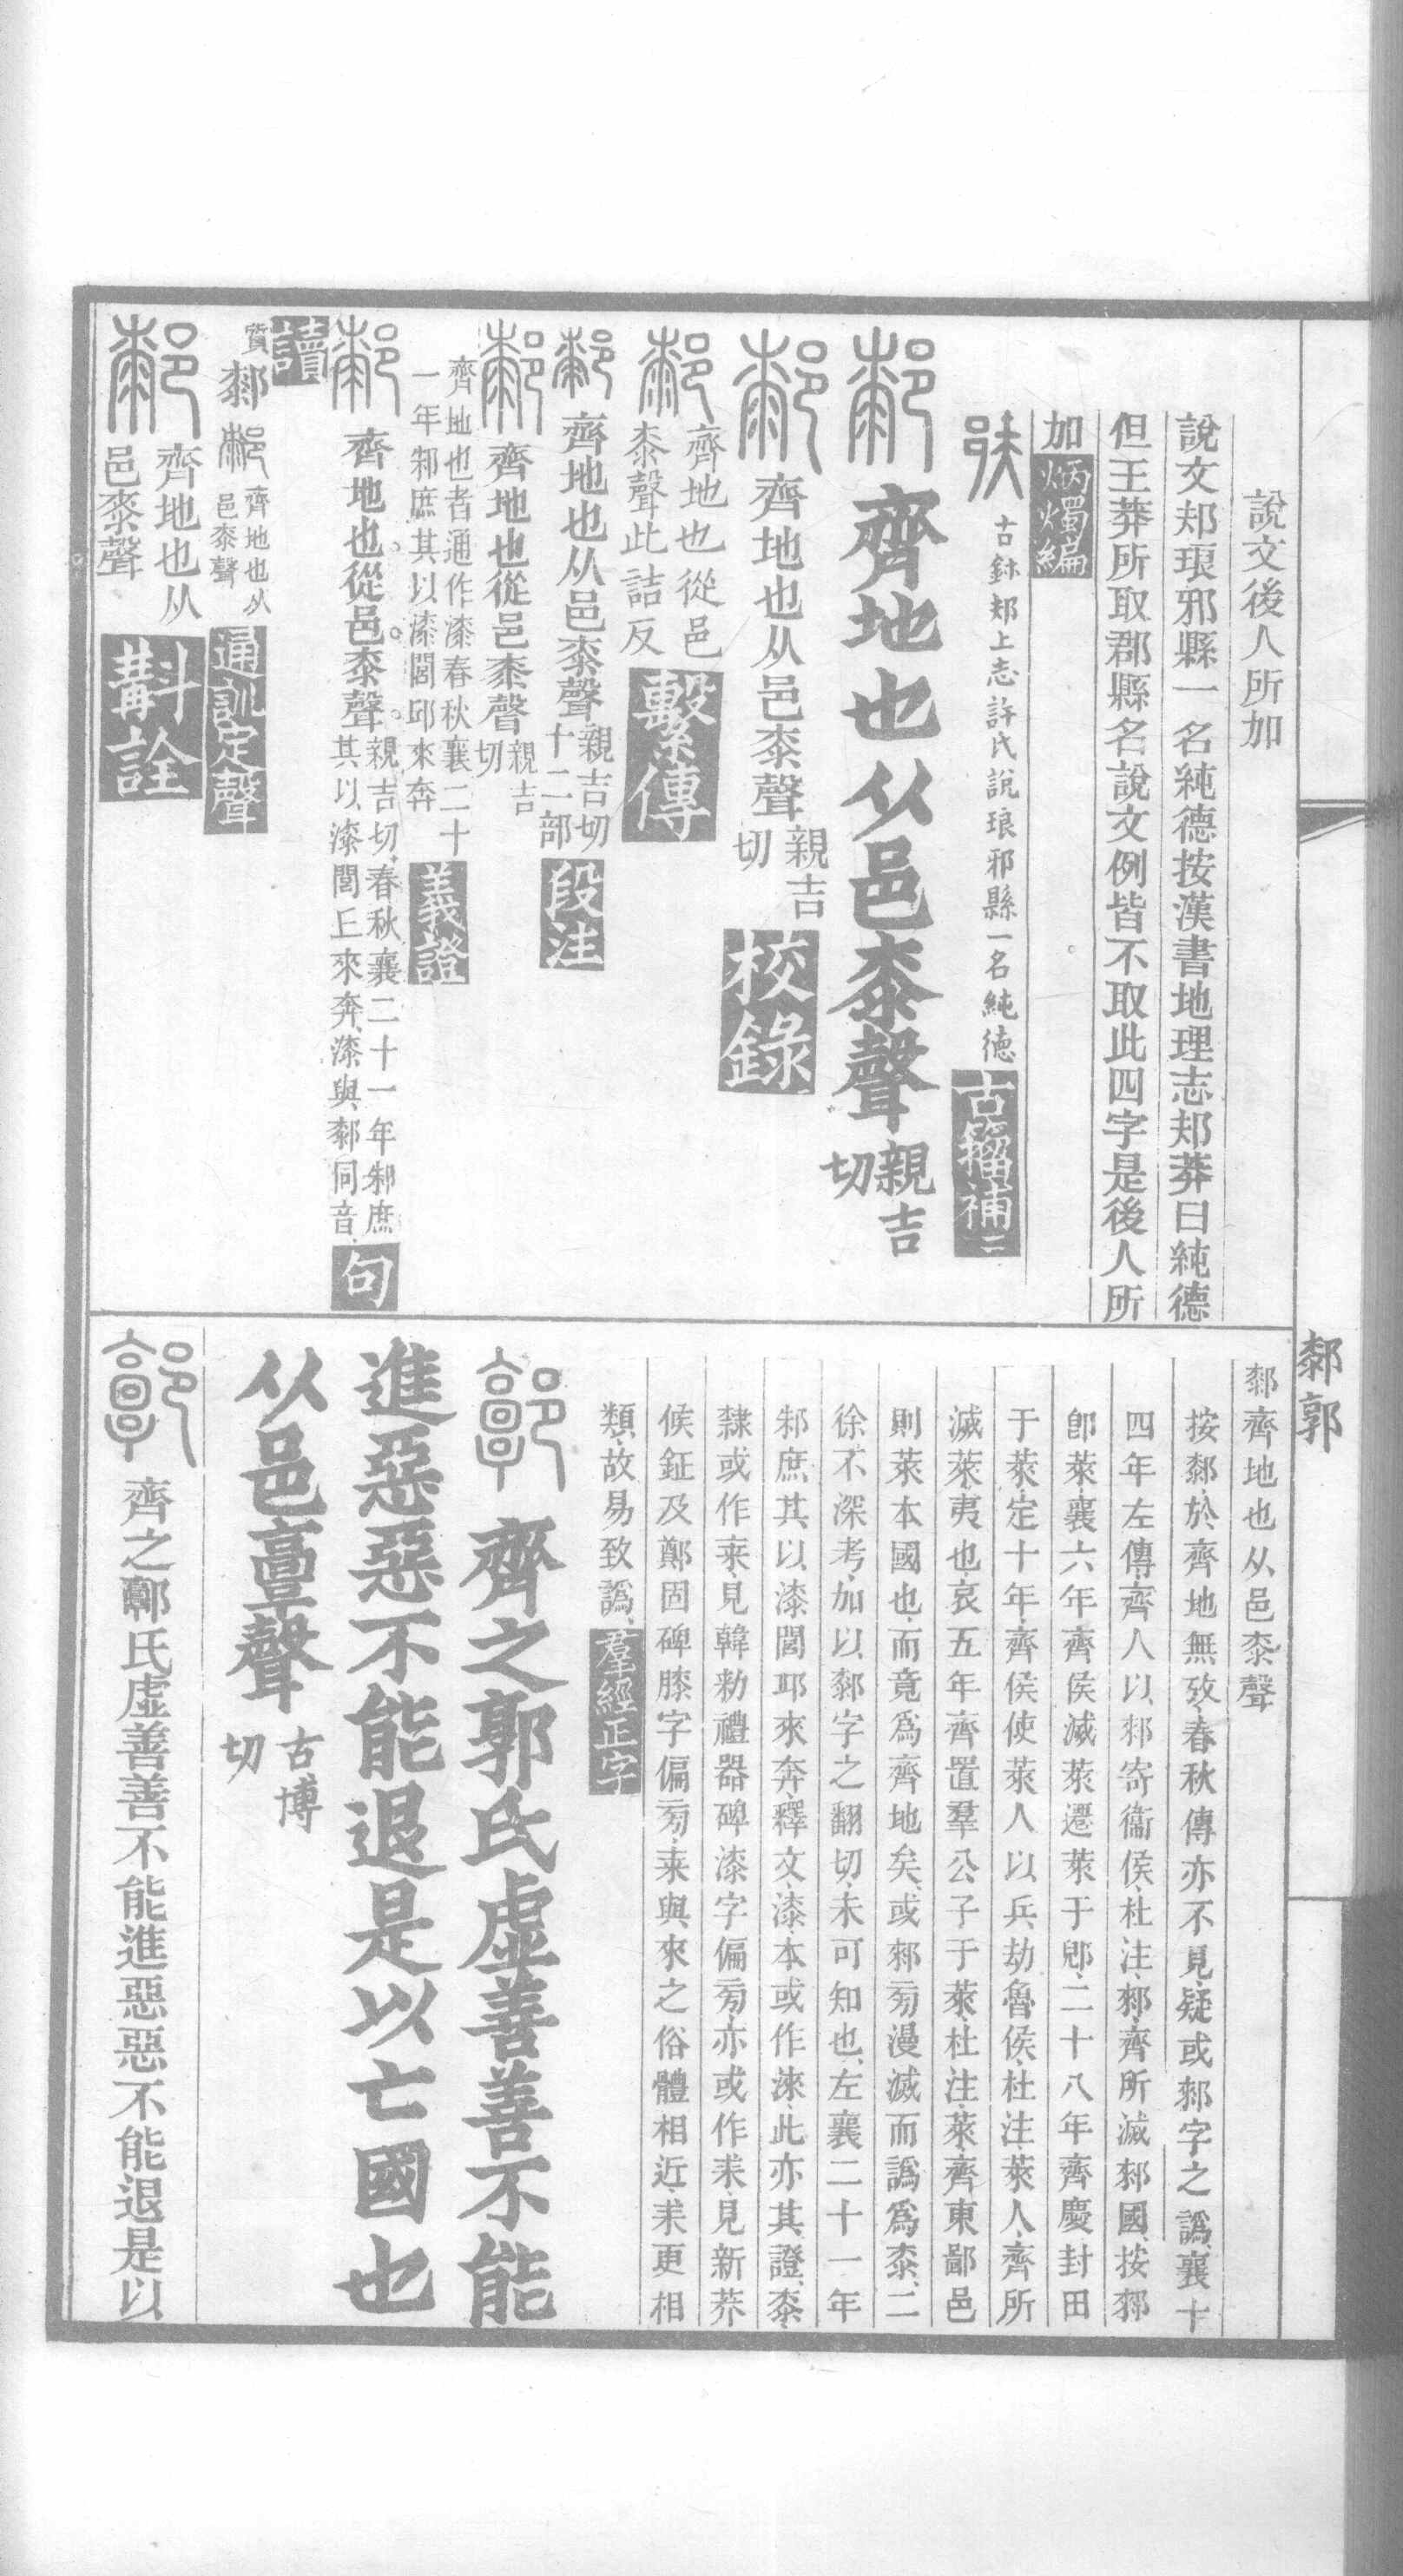 說文後人所加
說文䢼琅邪縣一名純德按漢書地理志䢼莽曰純德
但王莽所取郡縣名說文例皆不取此四字是後人所
加炳燭編
古鉥䢼上志許氏說琅邪縣一名純德古籀補三
齊地也从邑桼聲親吉切
齊地也从邑桼聲親吉切校錄
齊地也從邑桼聲此詰反繫傳
齊地也从邑桼聲親吉切十二部段注
齊地也從邑桼聲親吉切
齊地也者通作漆春秋襄二十一年邾庶其以漆閭邱來奔義證
齊地也從邑桼聲親吉切春秋襄二十一年邾庶其以漆閭丘來奔漆與䣛同音句
讀
質䣛齊地也从邑桼聲通訓定聲
齊地也从邑桼聲斠詮
䣛郭
䣛齊地也从邑桼聲
按䣛於齊地無攷春秋傳亦不見疑或郲字之譌襄十
四年左傳齊人以郲寄衞侯杜注郲齊所滅郲國按郲
卽萊襄六年齊侯滅萊遷萊于郳二十八年齊慶封田
于萊定十年齊侯使萊人以兵劫魯侯杜注萊人齊所
滅萊夷也哀五年齊置羣公子于萊杜注萊齊東鄙邑
則萊本國也而竟爲齊地矣或郲㫄漫滅而譌爲桼二
徐不深考加以䣛字之翻切未可知也左襄二十一年
邾庶其以漆閭邱來奔釋文漆本或作淶此亦其證桼
隸或作來見韓勑禮器碑漆字偏㫄亦或作耒見新莽
候鉦及鄭固碑膝字偏㫄耒與來之俗體相近耒更相
類故易致譌羣經正字
齊之郭氏虛善善不能
進惡惡不能退是以亡國也
从邑𩫏聲古博切
齊之𨟍氏虛善善不能進惡惡不能退是以